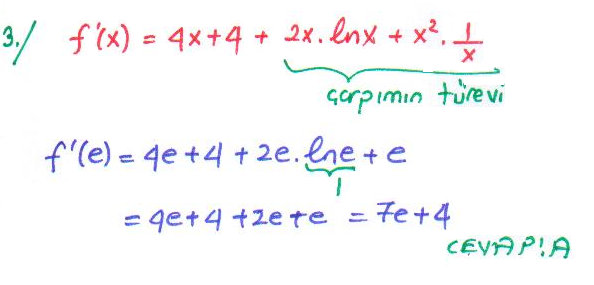 3./ f'(x) = 4x+4 + 2x.lnx + x².1/x
çarpımın türevi
f'(e) = 4e+4 +2e.lne + e
1
= 4e+4 +2e+e = 7e+4
CEVAP:A